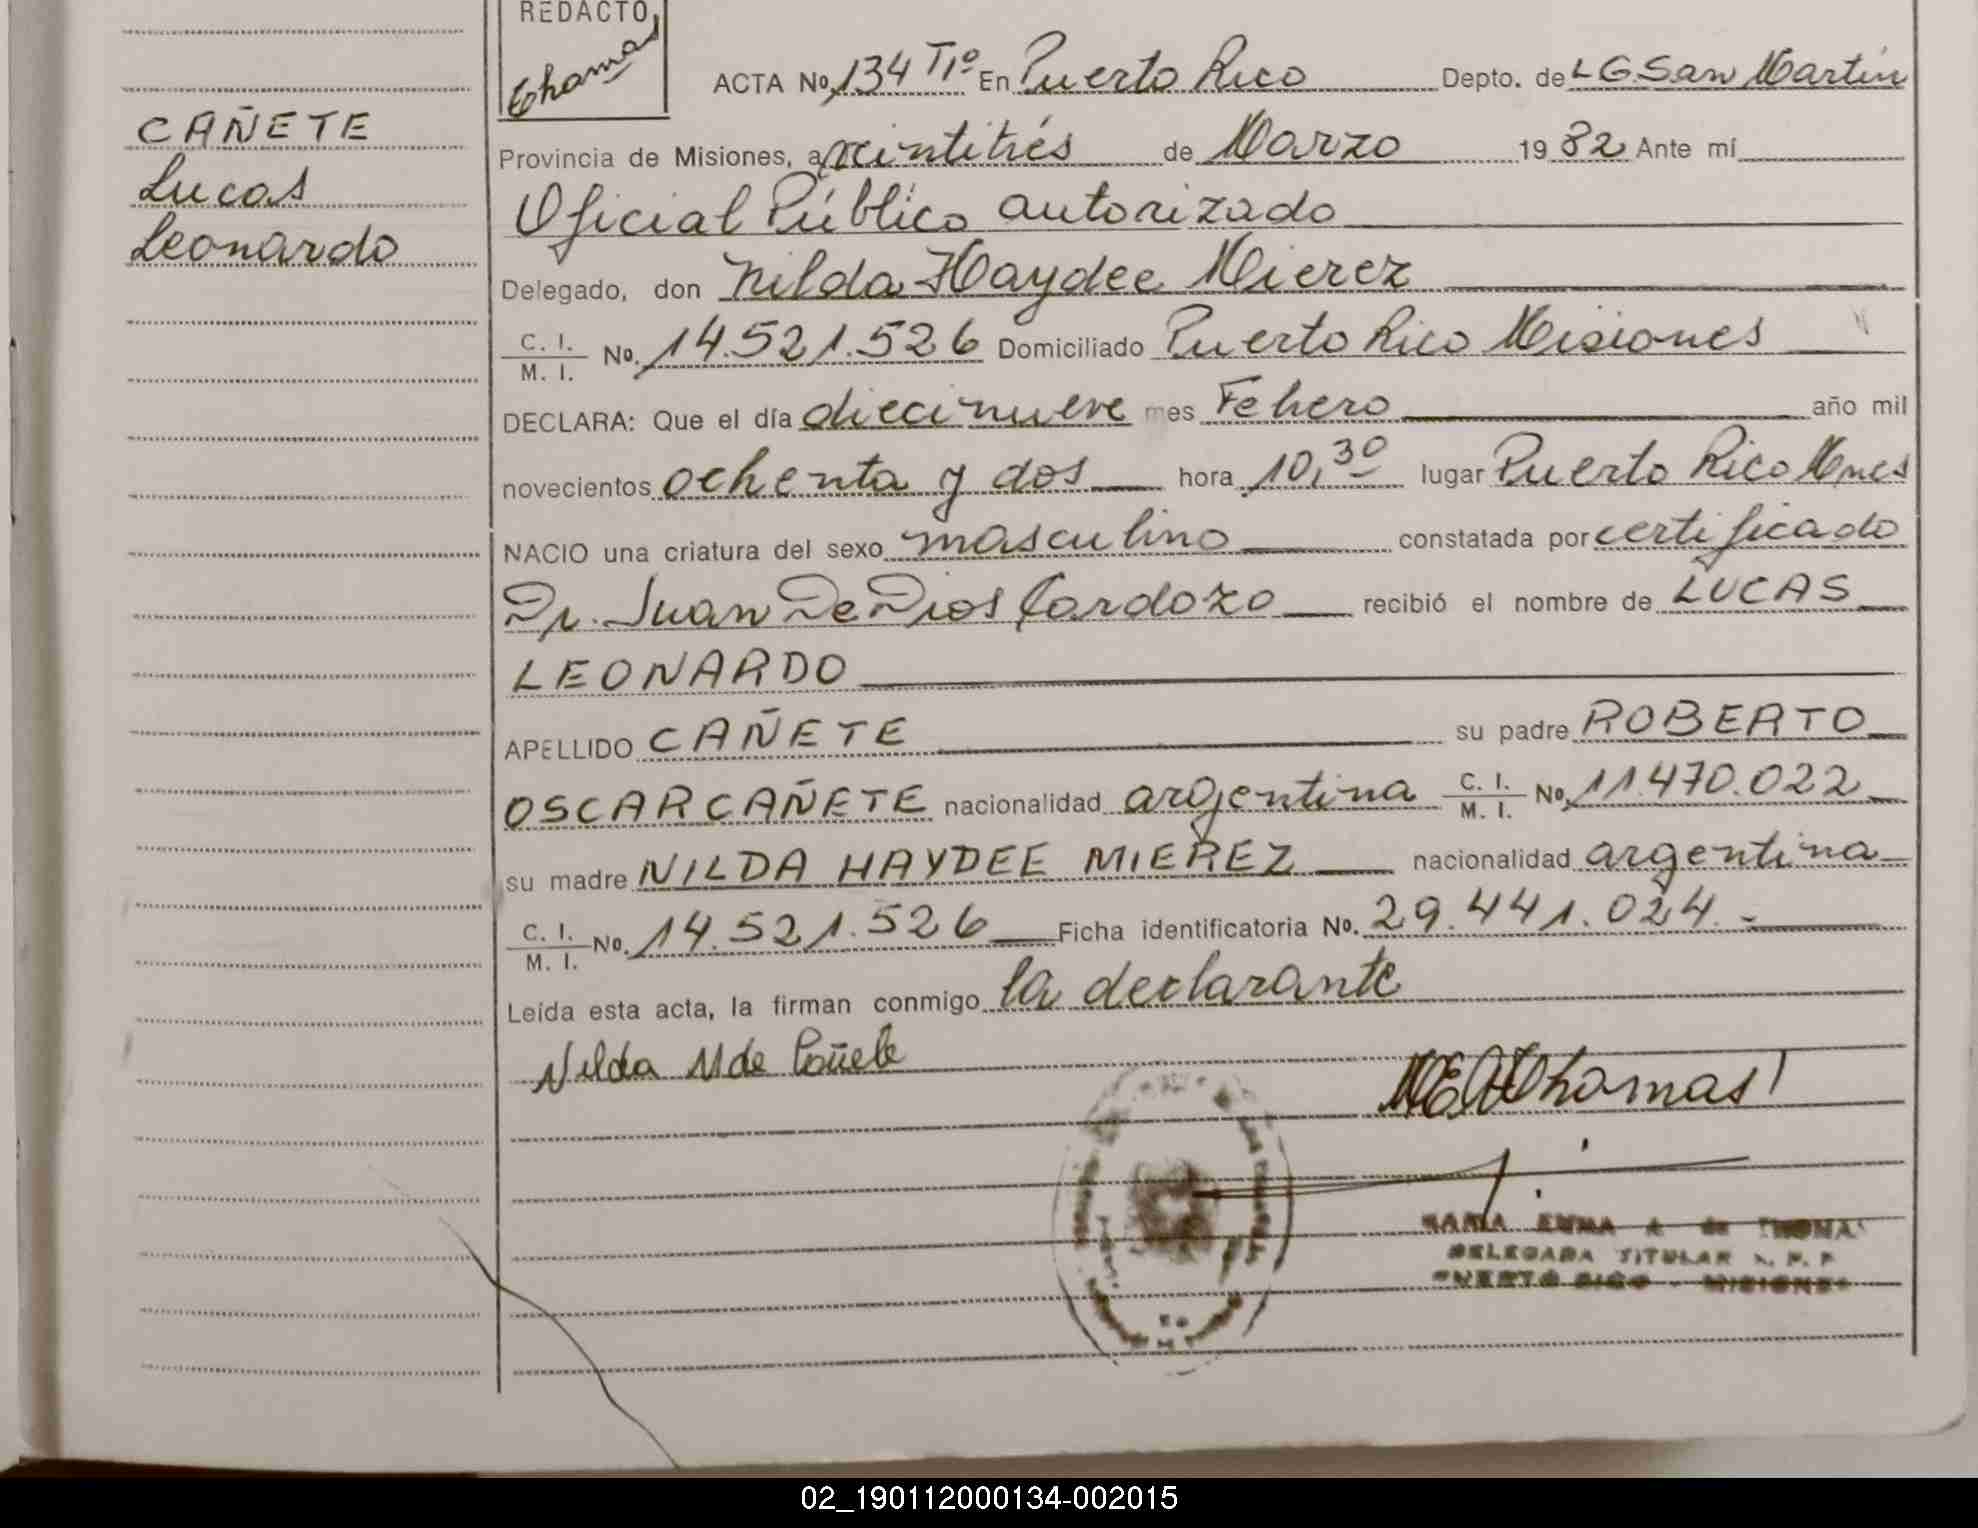 REDACTO
Thomas
CAÑETE
Lucas
Leonardo
ACTA No. 134 Tº1º En Puerto Rico Depto. de L G. San Martín
Provincia de Misiones, a veintitrés de Marzo 1982 Ante mí
Oficial Público autorizado
Delegado, don Nilda Haydee Mierez
C. I.
M. I. No. 14.521.526 Domiciliado Puerto Rico Misiones
DECLARA: Que el día diecinueve mes Febrero año mil
novecientos ochenta y dos hora 10,30 lugar Puerto Rico Mnes
NACIO una criatura del sexo masculino constatada por certificado
Dr. Juan De Dios Cardozo recibió el nombre de LUCAS
LEONARDO
APELLIDO CAÑETE su padre ROBERTO
OSCAR CAÑETE nacionalidad argentina C. I. M. I. No. 11.470.022
su madre NILDA HAYDEE MIEREZ nacionalidad argentina
C. I.
M. I. No. 14.521.526 Ficha identificatoria No. 29.441.024.-
Leída esta acta, la firman conmigo la declarante
Nilda M de Cañete
Thomas
MARIA EMMA A. de THOMAS
DELEGADA TITULAR R. P. P.
PUERTO RICO - MISIONES
02_190112000134-002015